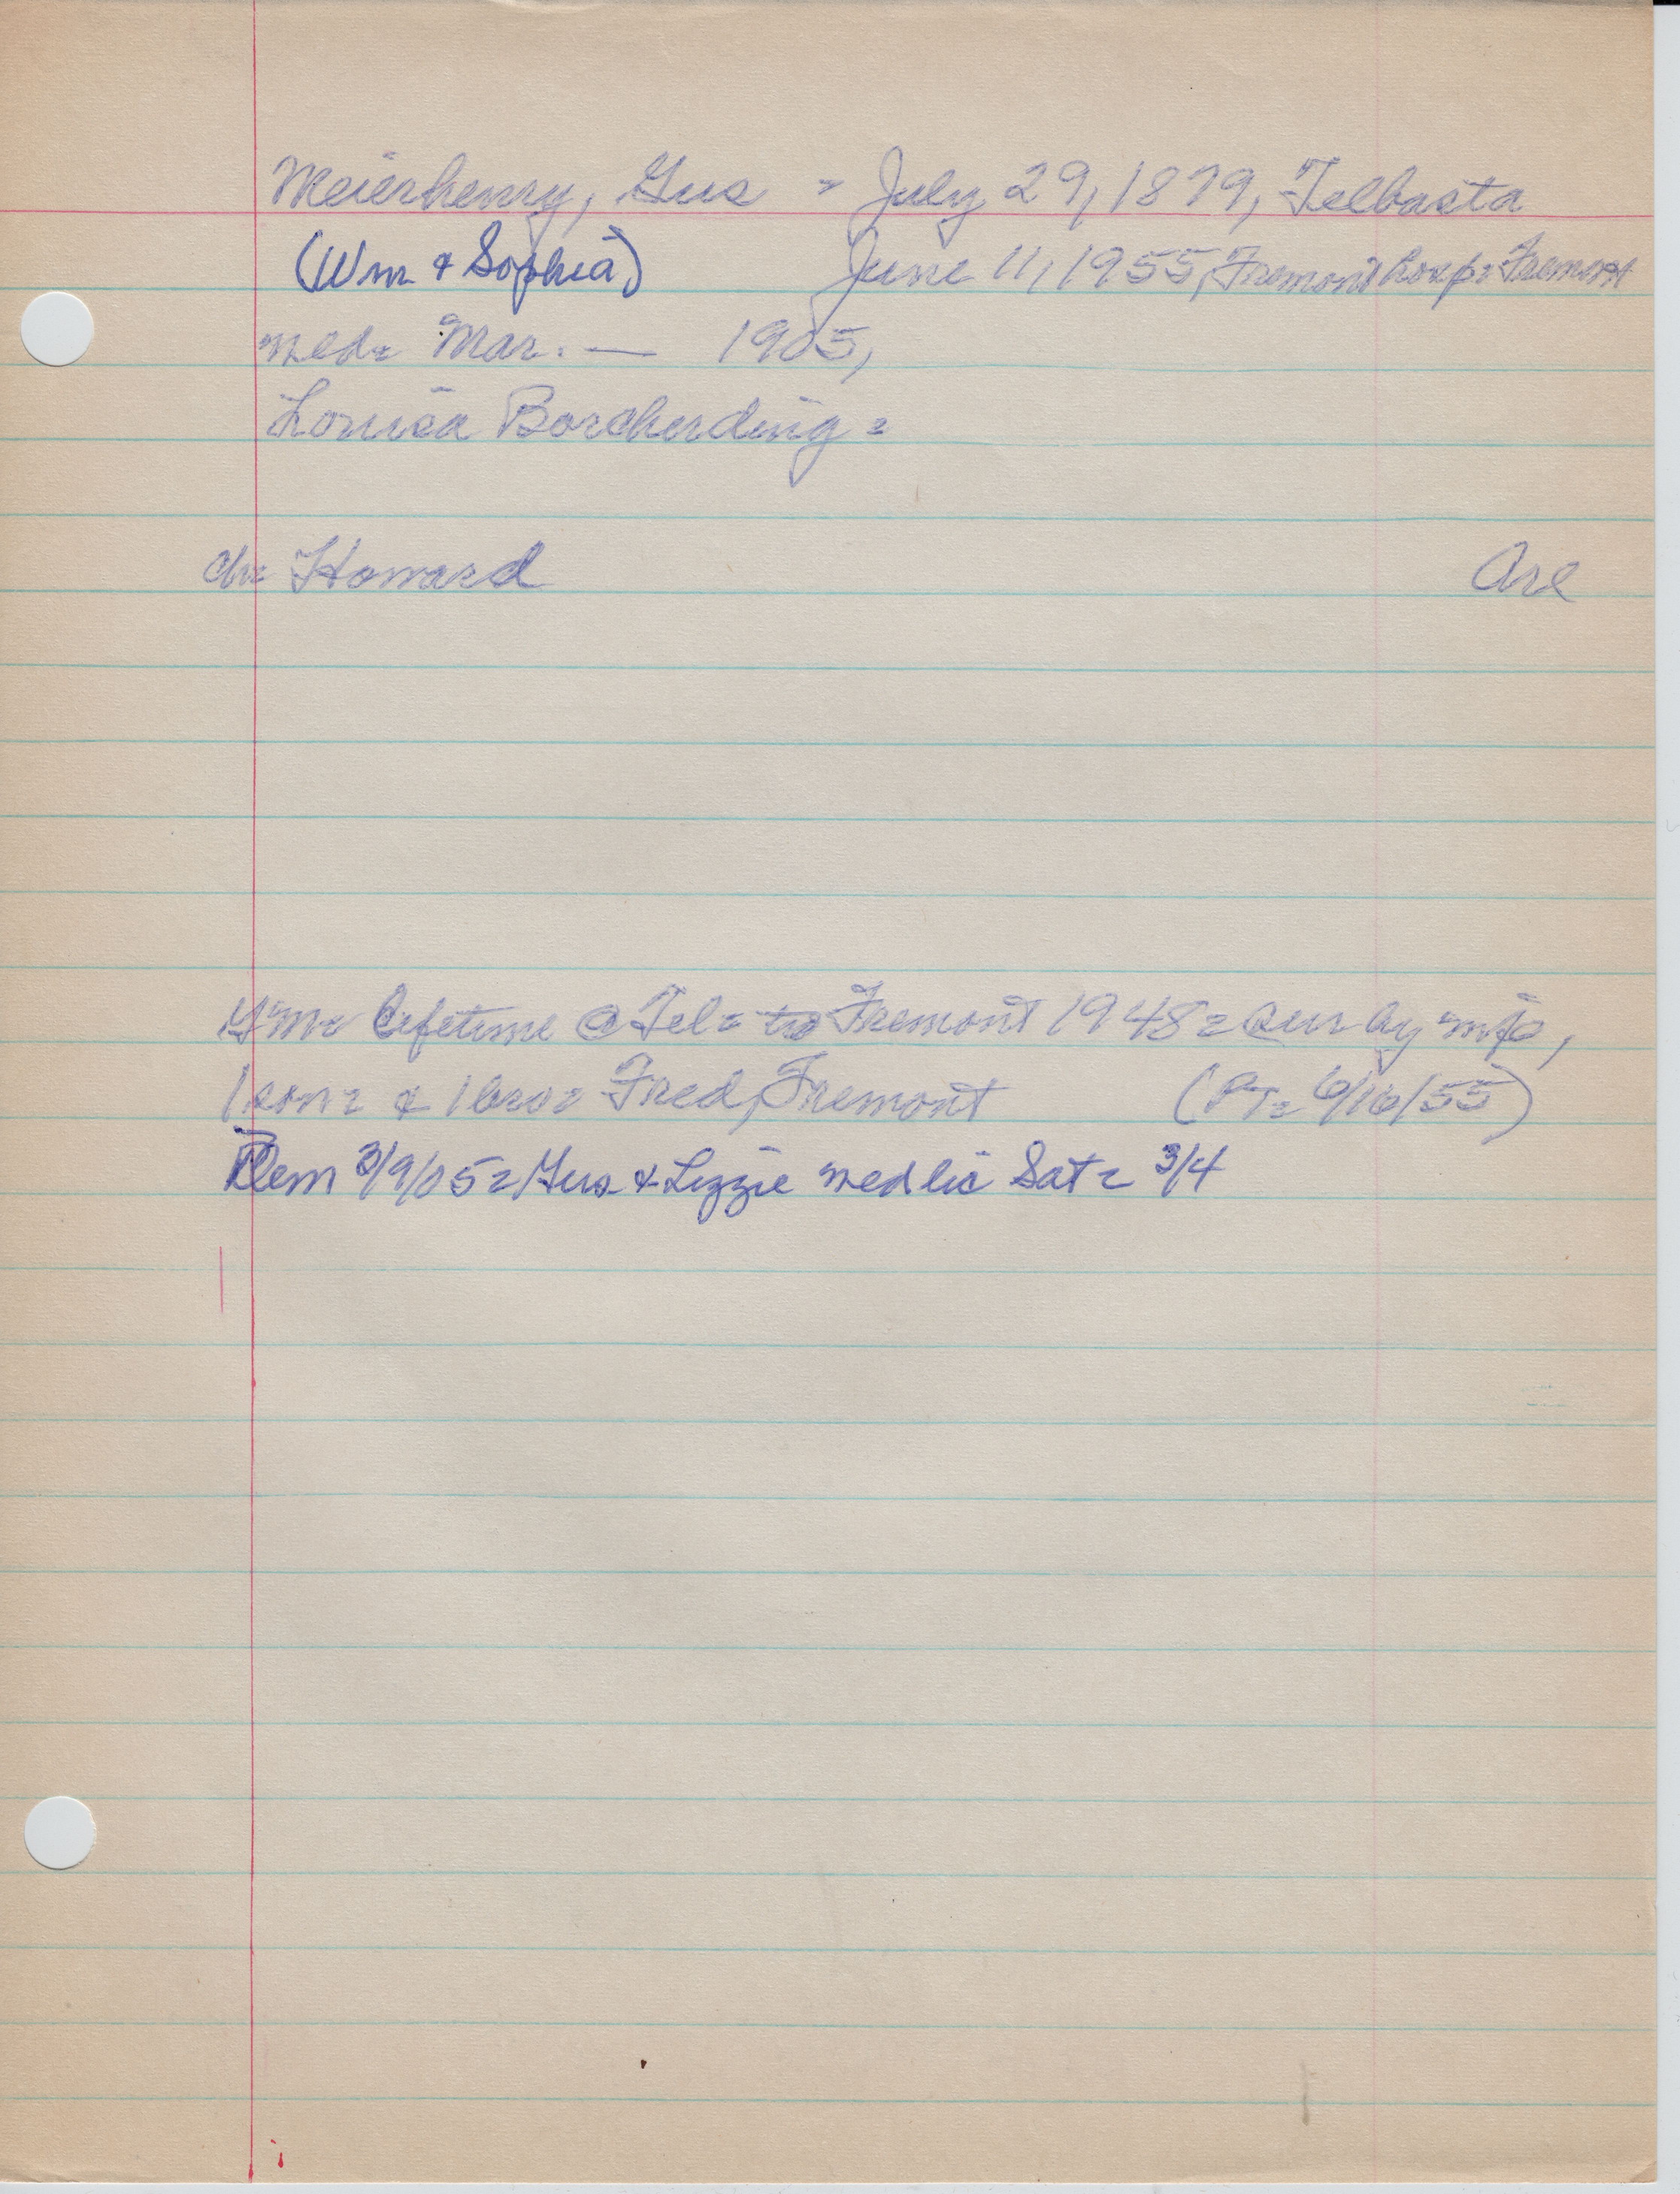 Meierhenry, Gus = July 29, 1879, Telbasta
(Wm & Sophia) June 11, 1955, Fremont hosp= Fremont
med= Mar. — 1905,
Louisa Borcherding =
ch= Howard Orl
Lifetime @ Tel= to Fremont 1948= sur by
1 son= & 1 bro= Fred, Fremont (PT= 6/16/55)
Dem 3/9/05= Gus & Lizzie med lic Sat= 3/4